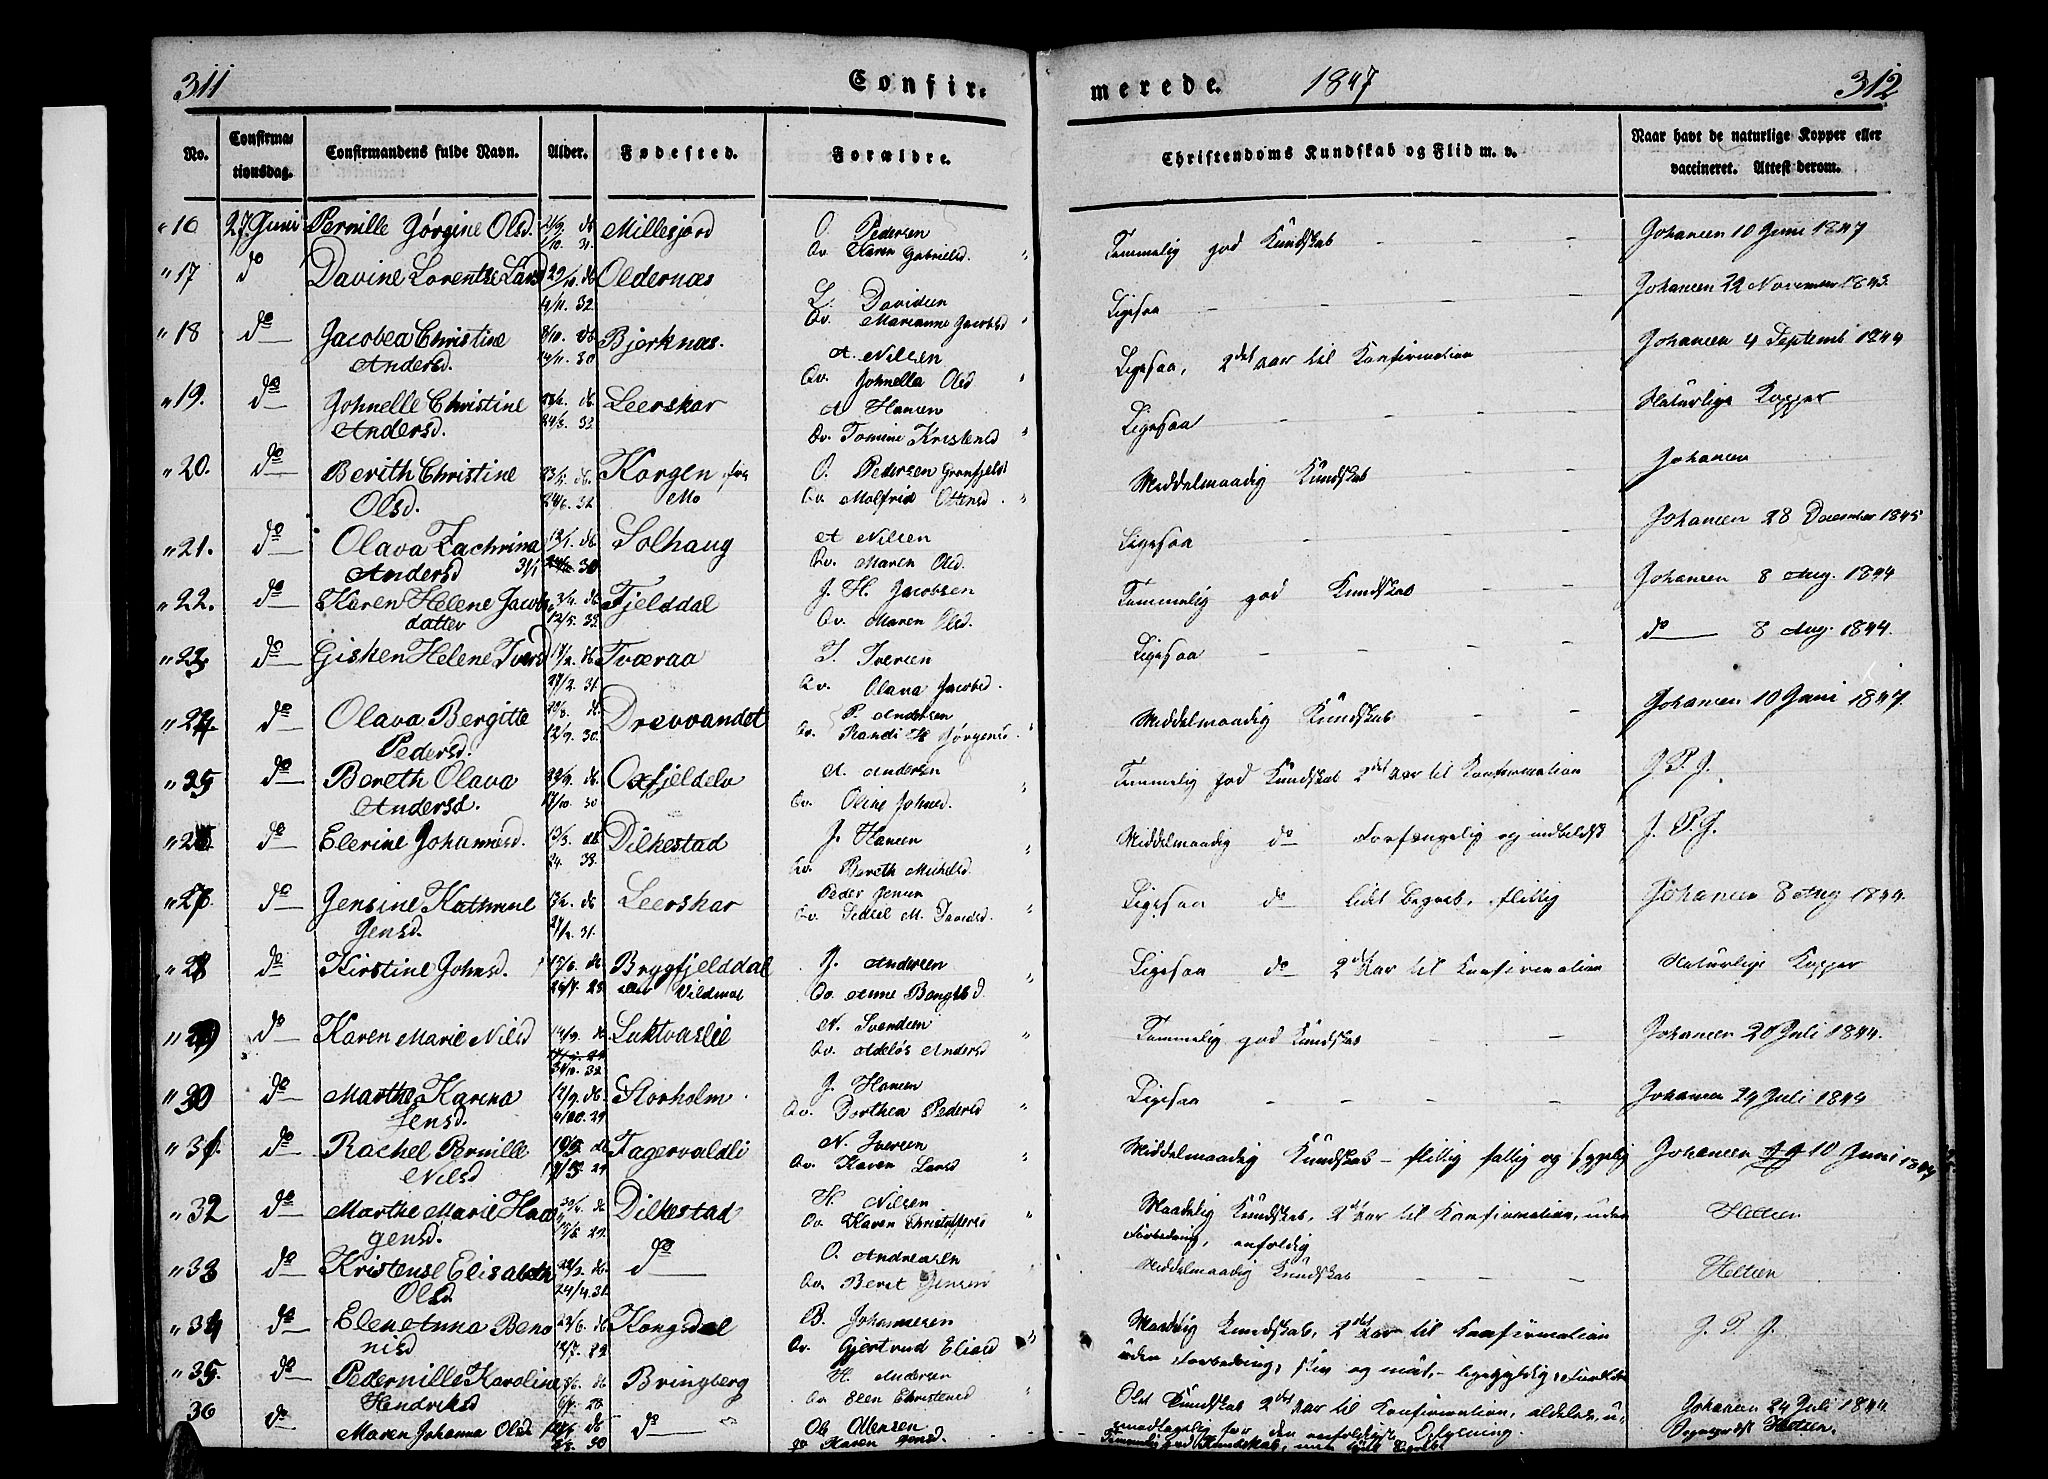 311
Confir-
merede.
1847
312
No.
Confirma-
tionsdag.
Confirmandens fulde Navn.
Alder.
Fødested.
Forældre.
Christendoms Kundskab og Flid m. v.
Naar havt de naturlige Kopper eller
vaccineret. Attest derom.
" 16 27 Juni Pernille Jørgine Olsd. Millesjord O. Pedersen Qv. Karen Gabrielsd. Temmelig god Kundskab - - - Johansen 10 Juni 1847
" 17 do Davine Lorentze Larsd 29/10 db 4/11. 32. Oldernæs L. Davidsen Qv. Marianne Jacobsd Ligesaa - - - Johansen 22 November 1843.
" 18 do Jacobea Christine
Andersd. 8/10. db 14/11. 30 Bjerknæs. A. Nilsen Qv. Johnella Olsd Ligesaa, 2det Aar til Konfirmation Johansen 4 Septemb 1844
" 19. do Johnelle Christine
Andersd. 24/5. 33. Leerskar A Hansen Qv. Tomine Kristensd Ligesaa - - - Naturlige Kopper
" 20. do Berith Christine
Olsd. 23/5 db. 24/6. 32 Korgen fra
Mo O. Pedersen Grønfjeld Qv. Malfrid Ottensd. Middelmaadig Kundskab - - Johansen
" 21. do Olava Zachrina
Andersd 12/1. db. 30 Solhaug A Nilsen Qv. Maren Olsd. Ligesaa - - - Johansen 28 December 1845
" 22. do Karen Helene Jacobs
datter 3/4. db 12/5. 33. Fjelddal J. H. Jacobsen Qv. Maren Olsd. Temmelig god Kundskab - - Johansen 8 Aug. 1844
" 23 do Gisken Helene Iversd 17/2. db 27/2. 31. Tværaa I. Iversen Qv. Olava Jacobsd. Ligesaa - - - - do 8 Aug. 1844.
" 24. do Olava Bergitte
Pedersd. db. 12/9. 30. Drevvandet P. Andersen Qv. Randi H Jørgensd. Middelmaadig Kundskab - - Johansen 10 Juni 1847.
" 25 do Bereth Olava
Andersd. 22/9. db. 17/10. 30 Oxfjeldelv A. Andersen Qv. Oline Johnsd. Temmelig god Kundskab 2det Aar til Konfirmation J. P. J.
" 26 do Elerine Johannesd. 13/3. db 24. 33. Dilkestad J. Hansen Qv. Bereth Michelsd. Middelmaadig do Forfængelig og indbildsk J. P. J.
" 27. do Jensine Kathrine
Jensd. 27/2. 31. Leerskar Peder Jensen Qv. Sidsel M. Davidsd. Ligesaa do lidt Begreb, flittig Johansen 8 Aug 1844.
" 28 do Kirstine Johnsd. 15/6. db 26/7. 29. Brygfjelddal
eller Vildmoe J. Andersen Qv. Anne Bengtsd. Ligesaa do 2det Aar til Konfirmation Naturlige Kopper
" 29 do Karen Marie Nilsd 14/9. db 31/10. 32. Luktvaslie N. Svendsen Qv. Adeløs Andersd Temmelig god Kundskab - - Johansen 20 Juli 1844.
" 30 do Marthe Karina
Jensd. 12/9. db. 29. Storholm J. Hansen Qv. Dorthea Pedersd Ligesaa - - - - Johansen 24 Juli 1844
" 31. do Rachel Pernille
Nilsd 29 Fagervoldli N. Iversen Qv. Karen Larsd Middelmaadig Kundskab - flittig fattig og sygelig Johansen 10 Juni 1847
" 32 do Marthe Marie Haa
gensd. 13/5 29. Dilkestad H. Nilsen Qv. Karen Christophersd Maadelig Kundskab, 2det Aar til Konfirmation, uden
Forbedring, enfoldig Heltzen
" 33 do Kristense Elisabeth
Olsd. 24/4. 31. do O. Andreasen Qv. Berit Jensen Middelmaadig Kundskab - - - Heltzen
" 34 do Elen Anna Beno
nisd 23/6. db 12/7. 32 Kongsdal B. Johannesen Qv. Gjertrud Eliasd Maadelig Kundskab, 2det Aar til Konfirmation
uden Forbedring, J. P. J.
" 35. do Pedernille Karoline
Hendriksd 8/6. db 28 Bringberg H. Andersen Qv. Elen Christensd Slet Kundskab 2det Aar til Konfirmation, aldeles u-
modtagelig for den enfoldigste Oplysning. Johansen 24 Juli 1844
36 do Maren Johanna Olsd db 30 do Ole Olsen Qv Karen Jensd. Temmelig god Kundskab, men lidt Begreb Heltzen.